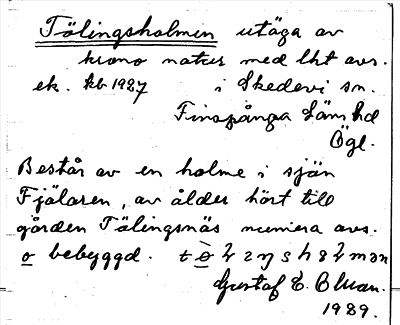 Tälingsholmen utäga av
krono natur med lht avs.
ek. kb 1927 i Skedevi sn.
Finspånga läns hd
Ögl.
Består av en holme i sjön
Fjälaren, av ålder hört till
gården Tälingsnäs numera avs.
o bebyggd.
Gustaf E. Bluan.
1989.